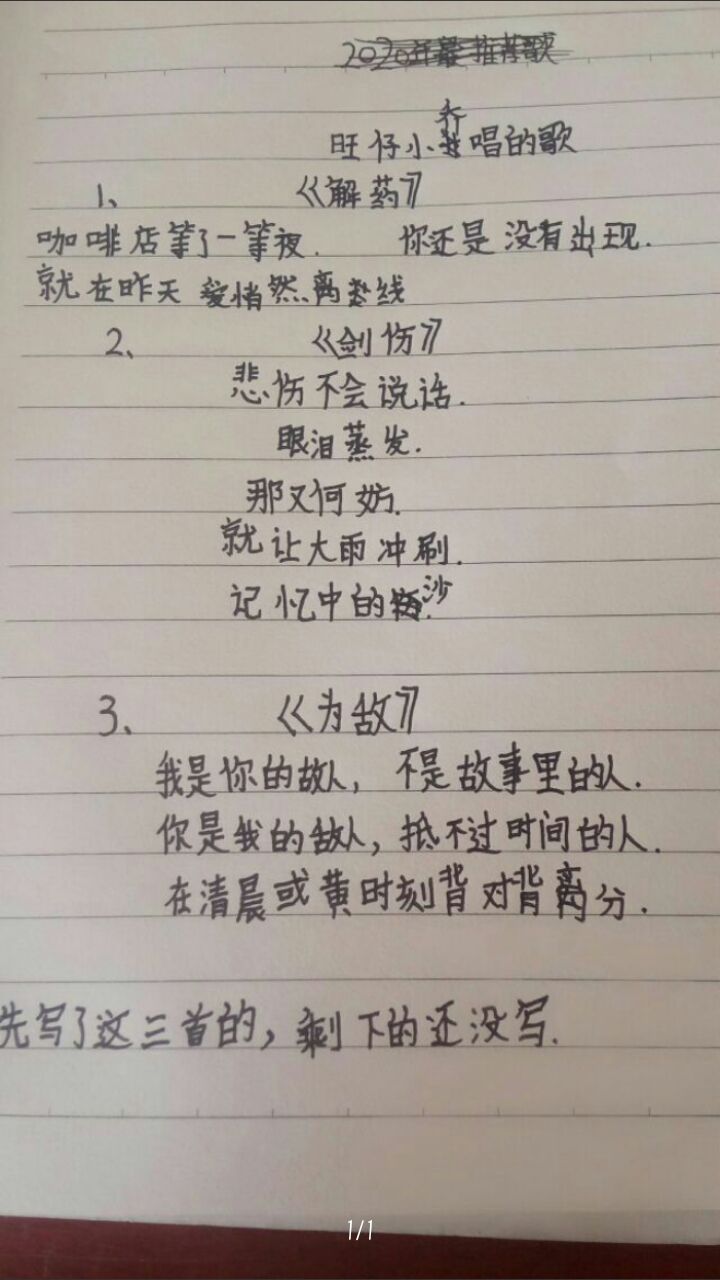 2020年最推荐歌
旺仔小乔唱的歌
1、 《解药》
咖啡店等了一等夜. 你还是没有出现.
就在昨天 爱悄然离线
2、 《剑伤》
悲伤不会说话.
眼泪蒸发.
那又何妨.
就让大雨冲刷.
记忆中的沙.
3、 《为敌》
我是你的故人，不是故事里的人.
你是我的敌人，抵不过时间的人.
在清晨或黄时刻背对背离分.
先写了这三首的，剩下的还没写.
1/1